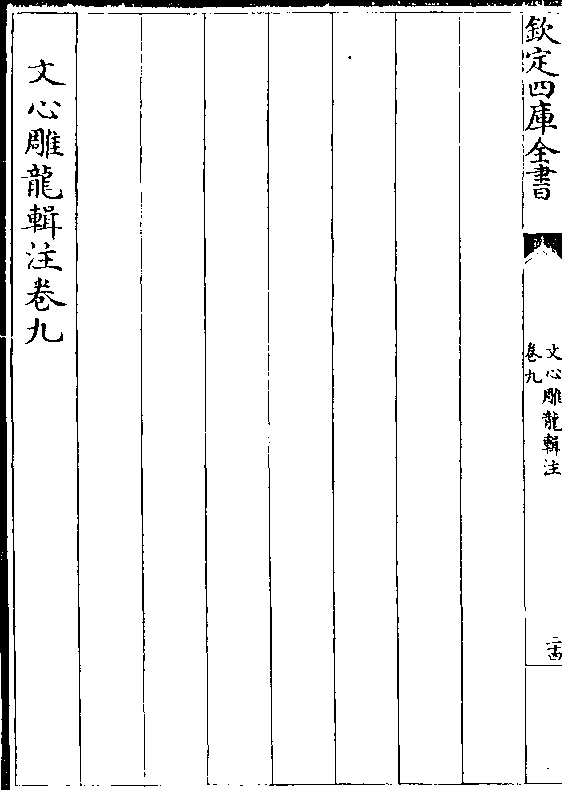 欽定四庫全書
文心雕龍輯注
卷九
二十四
文心雕龍輯注卷九